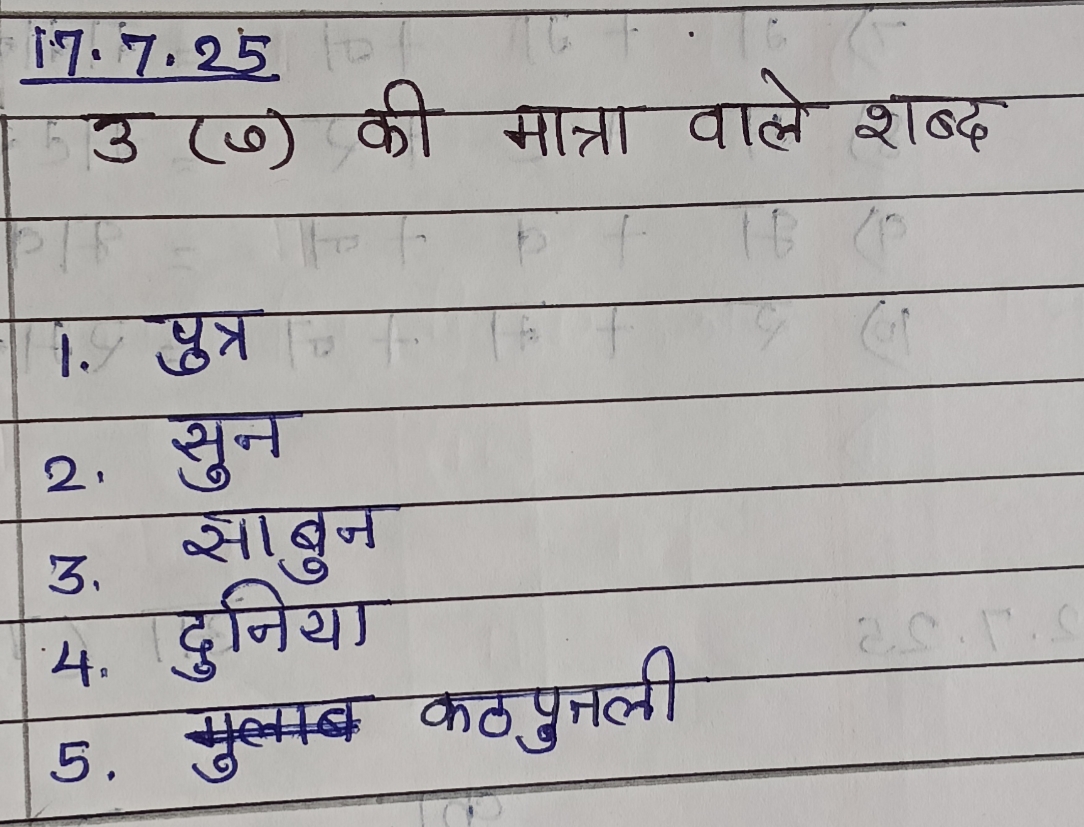 17.7.25
उ (ु) की मात्रा वाले शब्द
1. पुत्र
2. सुन
3. साबुन
4. दुनिया
5. गुलाब कठपुतली